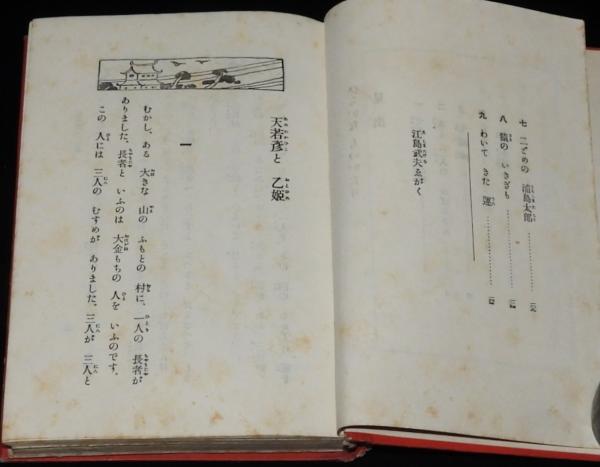 七 二どめの 浦島太郎
八 猿の いきぎも
九 わいて きた 運
江島武夫ゑがく
天若彦と 乙姫
一
むかし、ある 大きな 山の ふもとの 村に、一人の 長者が
ありました。長者と いふのは 大金もちの 人を いふのです。
この 人には 三人の むすめが ありました。三人が 三人と